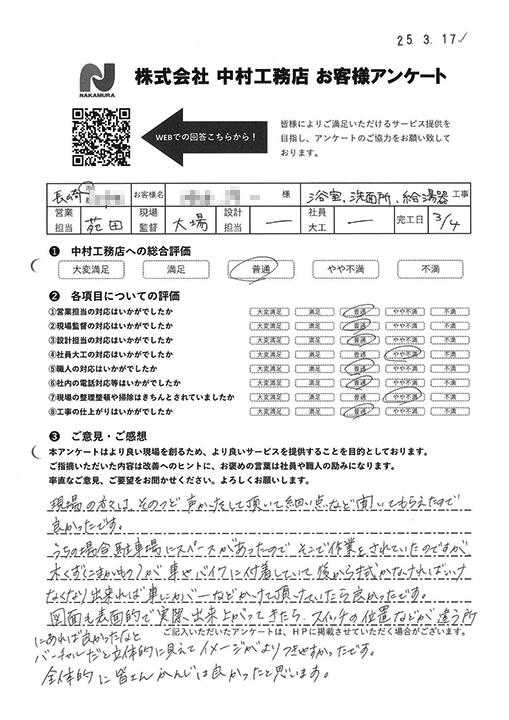 25. 3. 17
NAKAMURA
株式会社 中村工務店 お客様アンケート
WEBでの回答こちらから！
皆様によりご満足いただけるサービス提供を
目指し、アンケートのご協力をお願い致して
おります。
長崎 お客様名 様 浴室、洗面所、給湯器 工事
営業担当 苑田 現場監督 大場 設計担当 ー 社員大工 ー 完工日 3/4
❶ 中村工務店への総合評価
大変満足 満足 普通 やや不満 不満
❷ 各項目についての評価
①営業担当の対応はいかがでしたか 大変満足 満足 普通 やや不満 不満
②現場監督の対応はいかがでしたか 大変満足 満足 普通 やや不満 不満
③設計担当の対応はいかがでしたか 大変満足 満足 普通 やや不満 不満
④社員大工の対応はいかがでしたか 大変満足 満足 普通 やや不満 不満
⑤職人の対応はいかがでしたか 大変満足 満足 普通 やや不満 不満
⑥社内の電話対応等はいかがでしたか 大変満足 満足 普通 やや不満 不満
⑦現場の整理整頓や掃除はきちんとされていましたか 大変満足 満足 普通 やや不満 不満
⑧工事の仕上がりはいかがでしたか 大変満足 満足 普通 やや不満 不満
❸ ご意見・ご感想
本アンケートはより良い現場を創るため、より良いサービスを提供することを目的としております。
ご指摘いただいた内容は改善へのヒントに、お褒めの言葉は社員や職人の励みになります。
率直なご意見、ご要望をお聞かせください。よろしくお願いします。
現場の方々は、そのつど声かけをして頂いて細い点など聞いてもらえたので
良かったです。
うちの場合駐車場にスペースがあったので、そこで作業をされていたのですが、
木くず(こまかいもの)が車やバイクに付着していて後から拭かなければいけ
なくなり出来れば車にカバーなどかけて頂けていたら良かったです。
図面も表面的で実際出来上がってきたら、スイッチの位置などが違う所
にあれば良かったなと
ご記入いただいたアンケートは、HPに掲載させていただく場合がございます。
バーチャルだと立体的に見えてイメージがよりつきやすかったです。
全体的に皆さんかんじは良かったと思います。